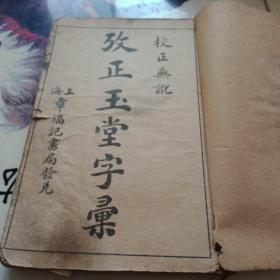 校正無訛
攷正玉堂字彙
上海章福記書局發兌